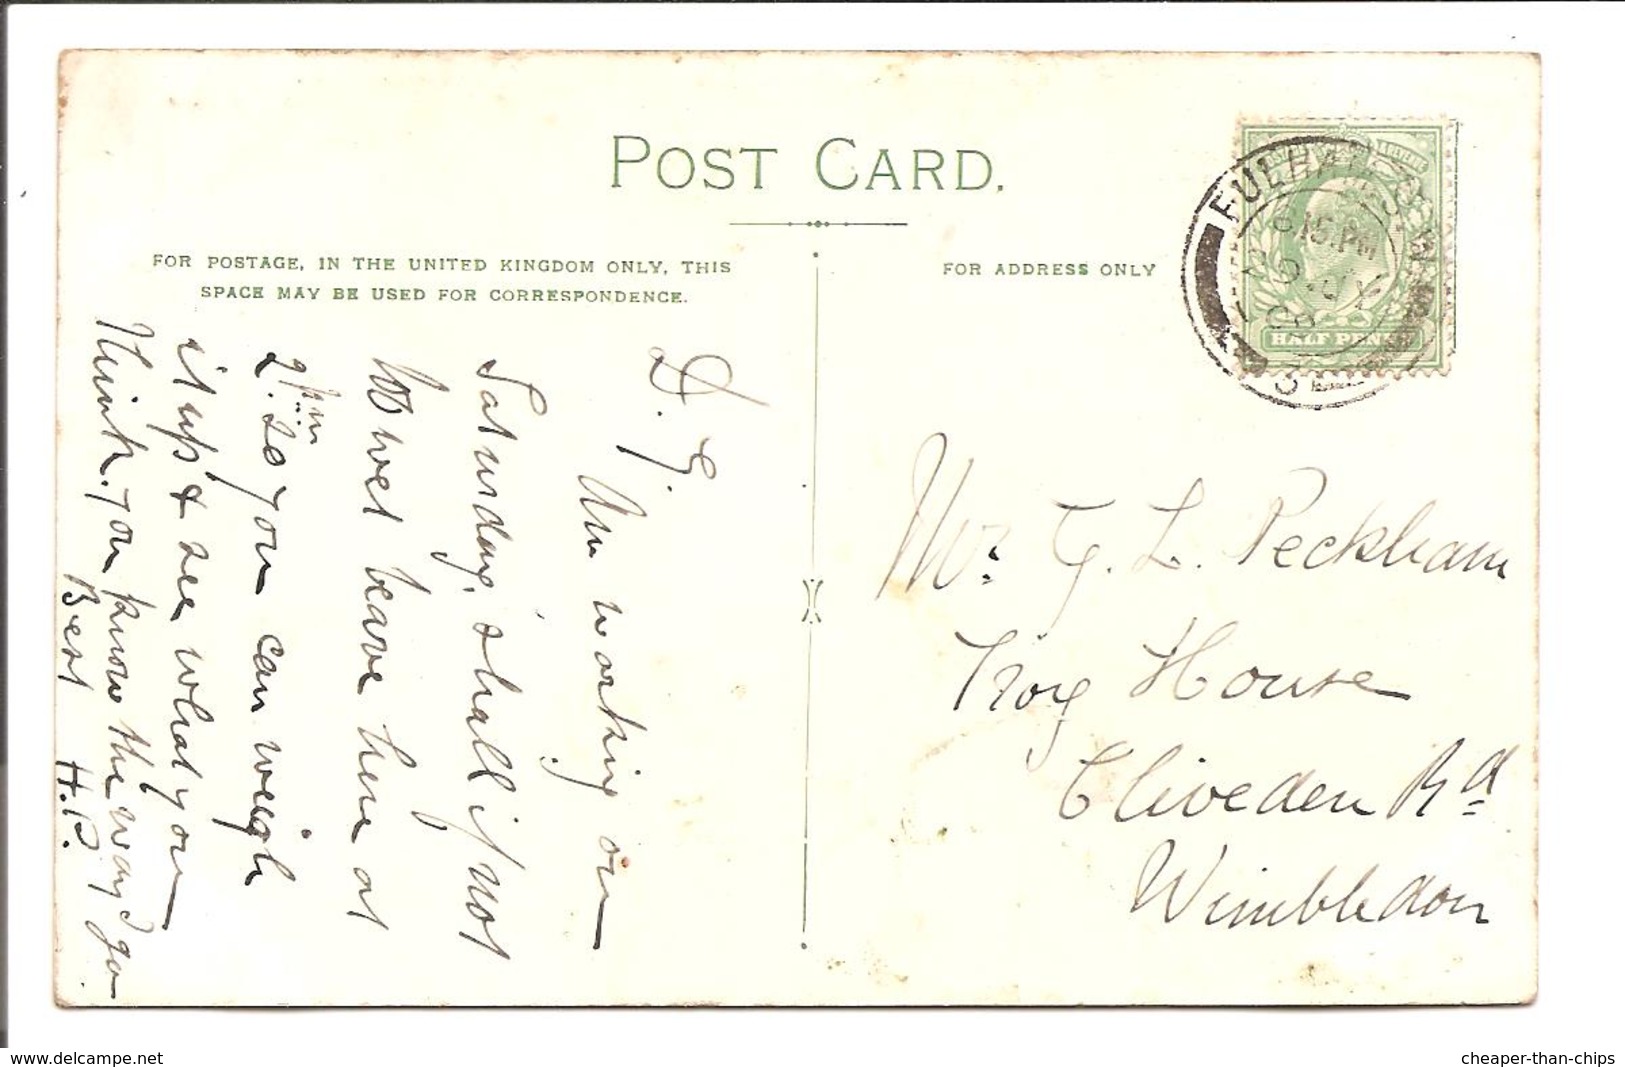 POST CARD.
FOR POSTAGE, IN THE UNITED KINGDOM ONLY, THIS
SPACE MAY BE USED FOR CORRESPONDENCE.
FOR ADDRESS ONLY
FULHAM
8.15.PM
HALF PENNY
D. G.
Am working on
Saturday, shall if not
too wet leave here at
2.pm so you can weigh
it up & see what you
think. You know the way I go
Bert H.P.
Mr. G. L. Peckham
Troy House
Cliveden Rd
Wimbledon
www.delcampe.net
cheaper-than-chips